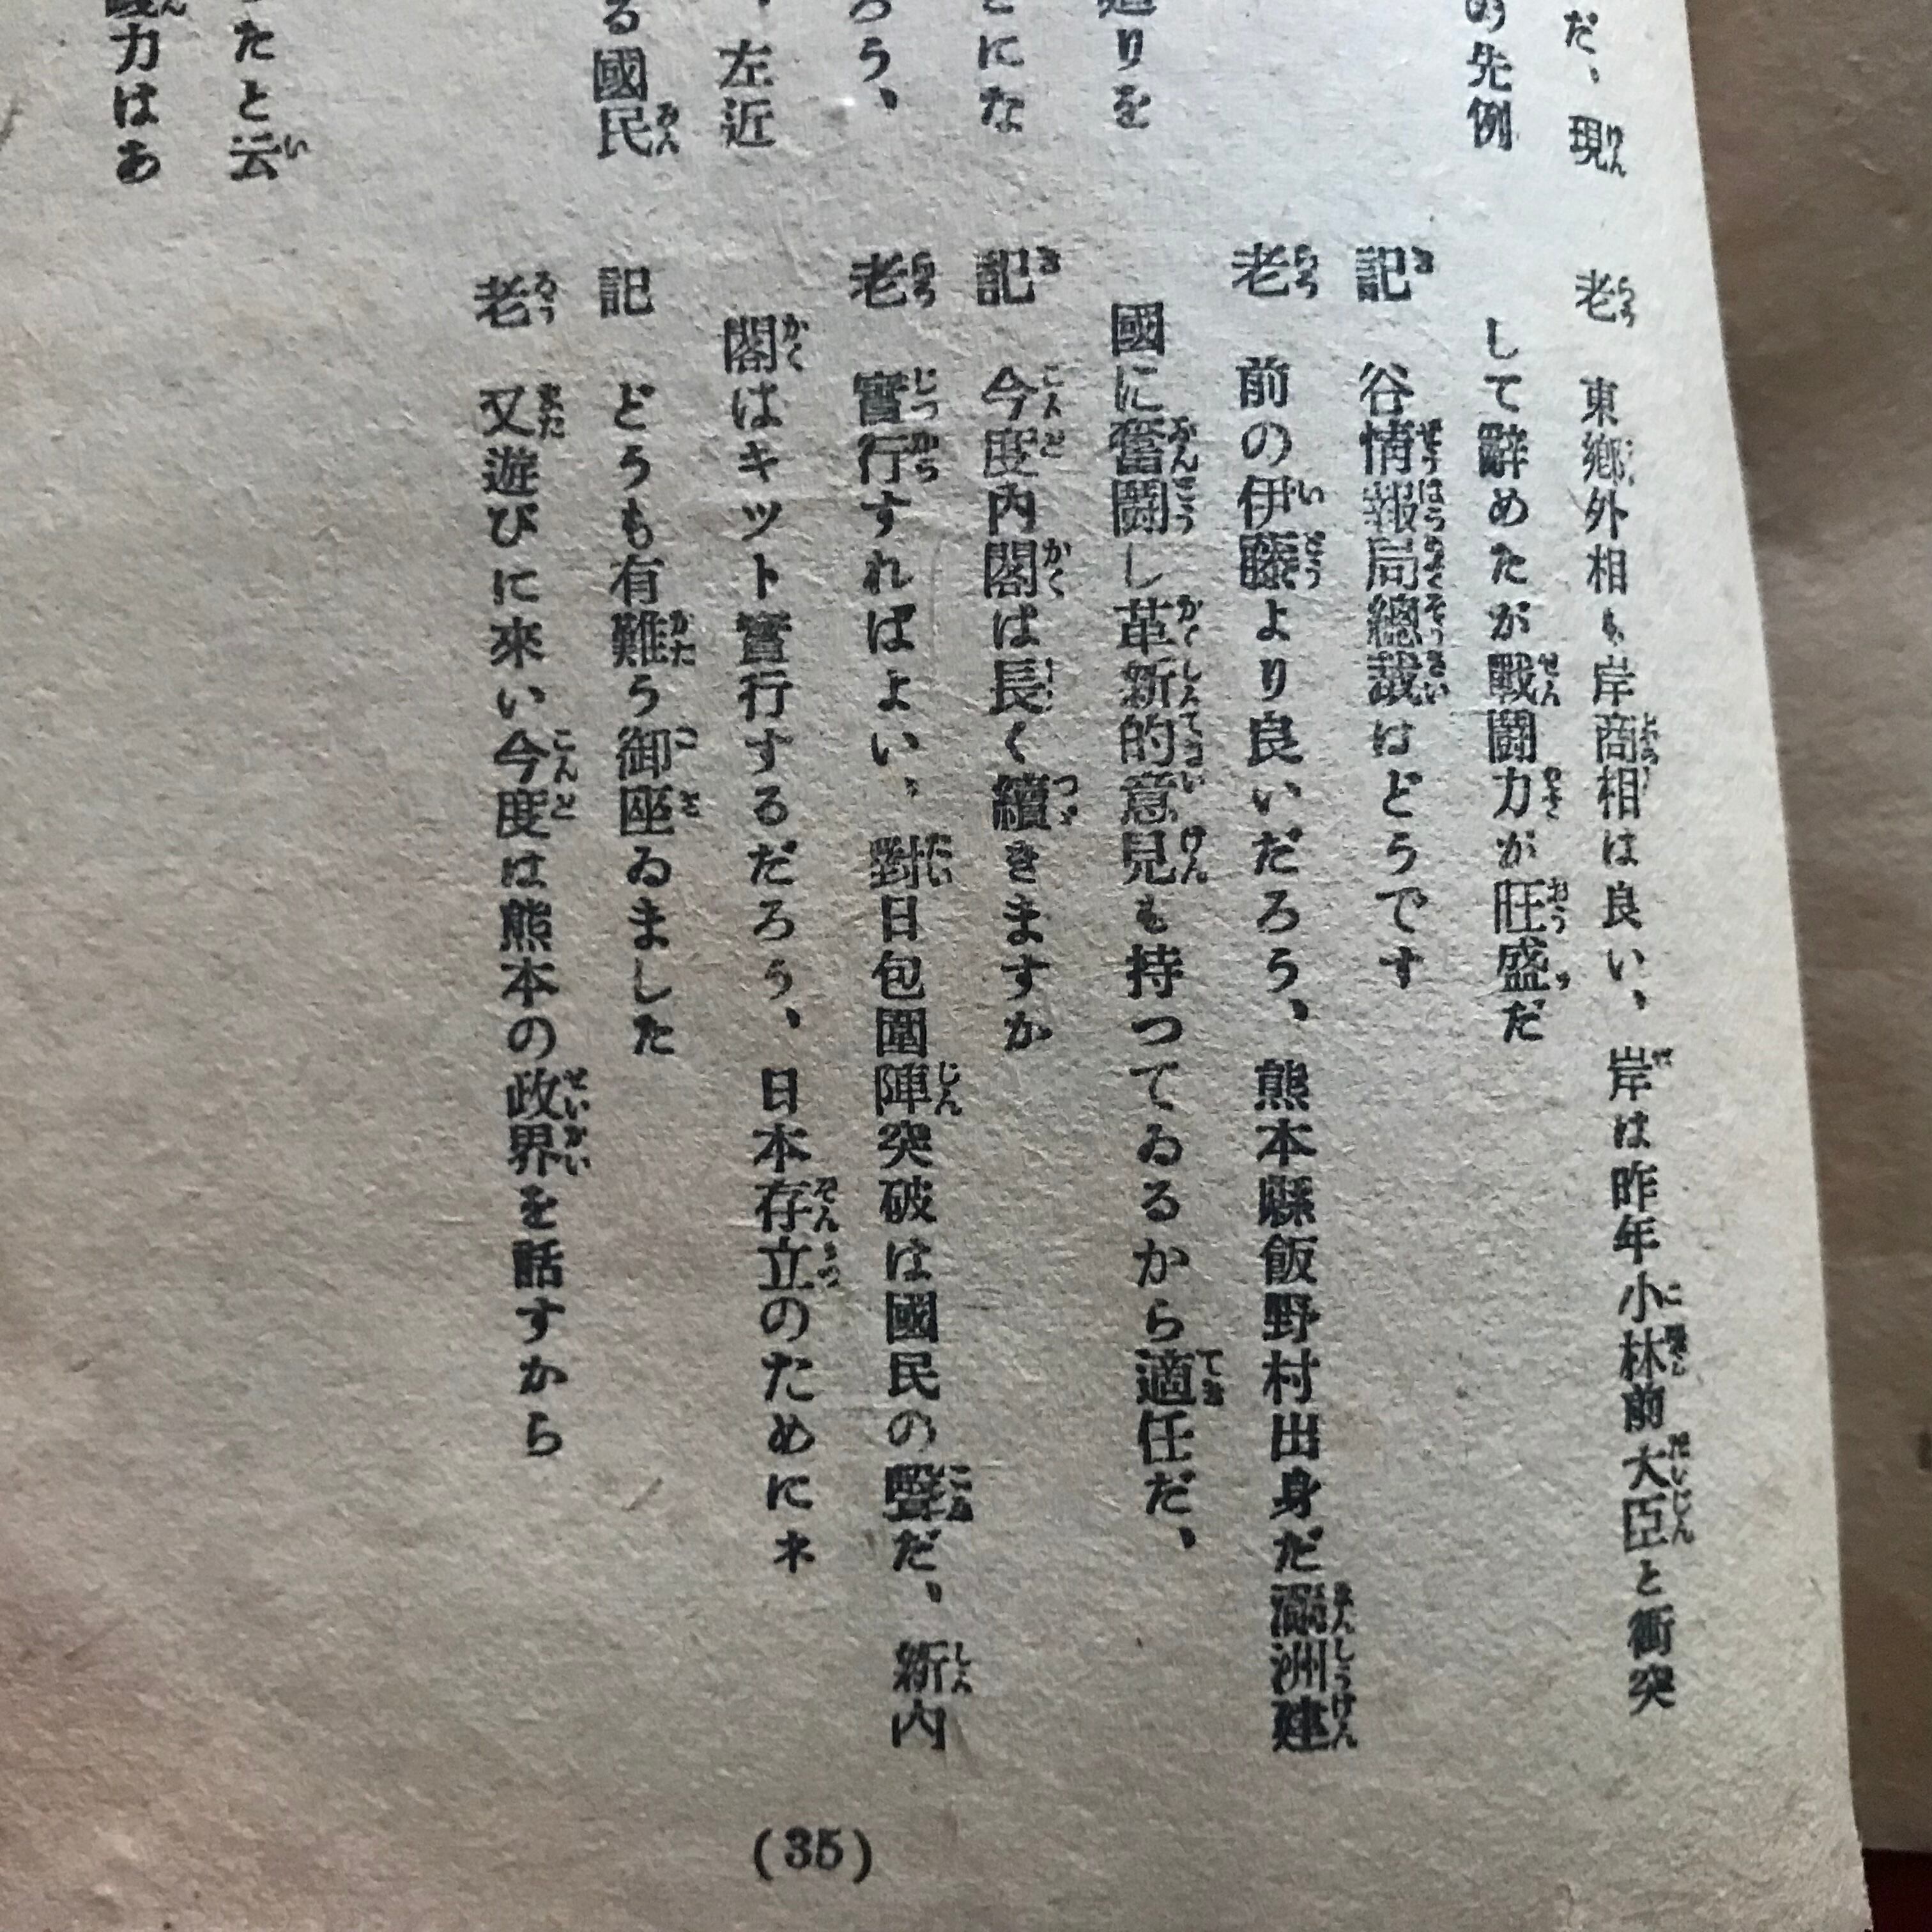 だ、現
の先例
りを
とにな
ろう、
左近
る國民
たと云
力はあ
老　東鄕外相も岸商相は良い、岸は昨年小林前大臣と衝突
して辭めたが戰鬪力が旺盛だ
記　谷情報局總裁はどうです
老　前の伊藤より良いだろう、熊本縣飯野村出身だ滿洲建
國に奮鬪し革新的意見も持つてゐるから適任だ、
記　今度內閣は長く續きますか
老　實行すればよい、對日包圍陣突破は國民の聲だ、新內
閣はキツト實行するだろう、日本存立のためにネ
記　どうも有難う御座ゐました
老　又遊びに來い今度は熊本の政界を話すから
(35)